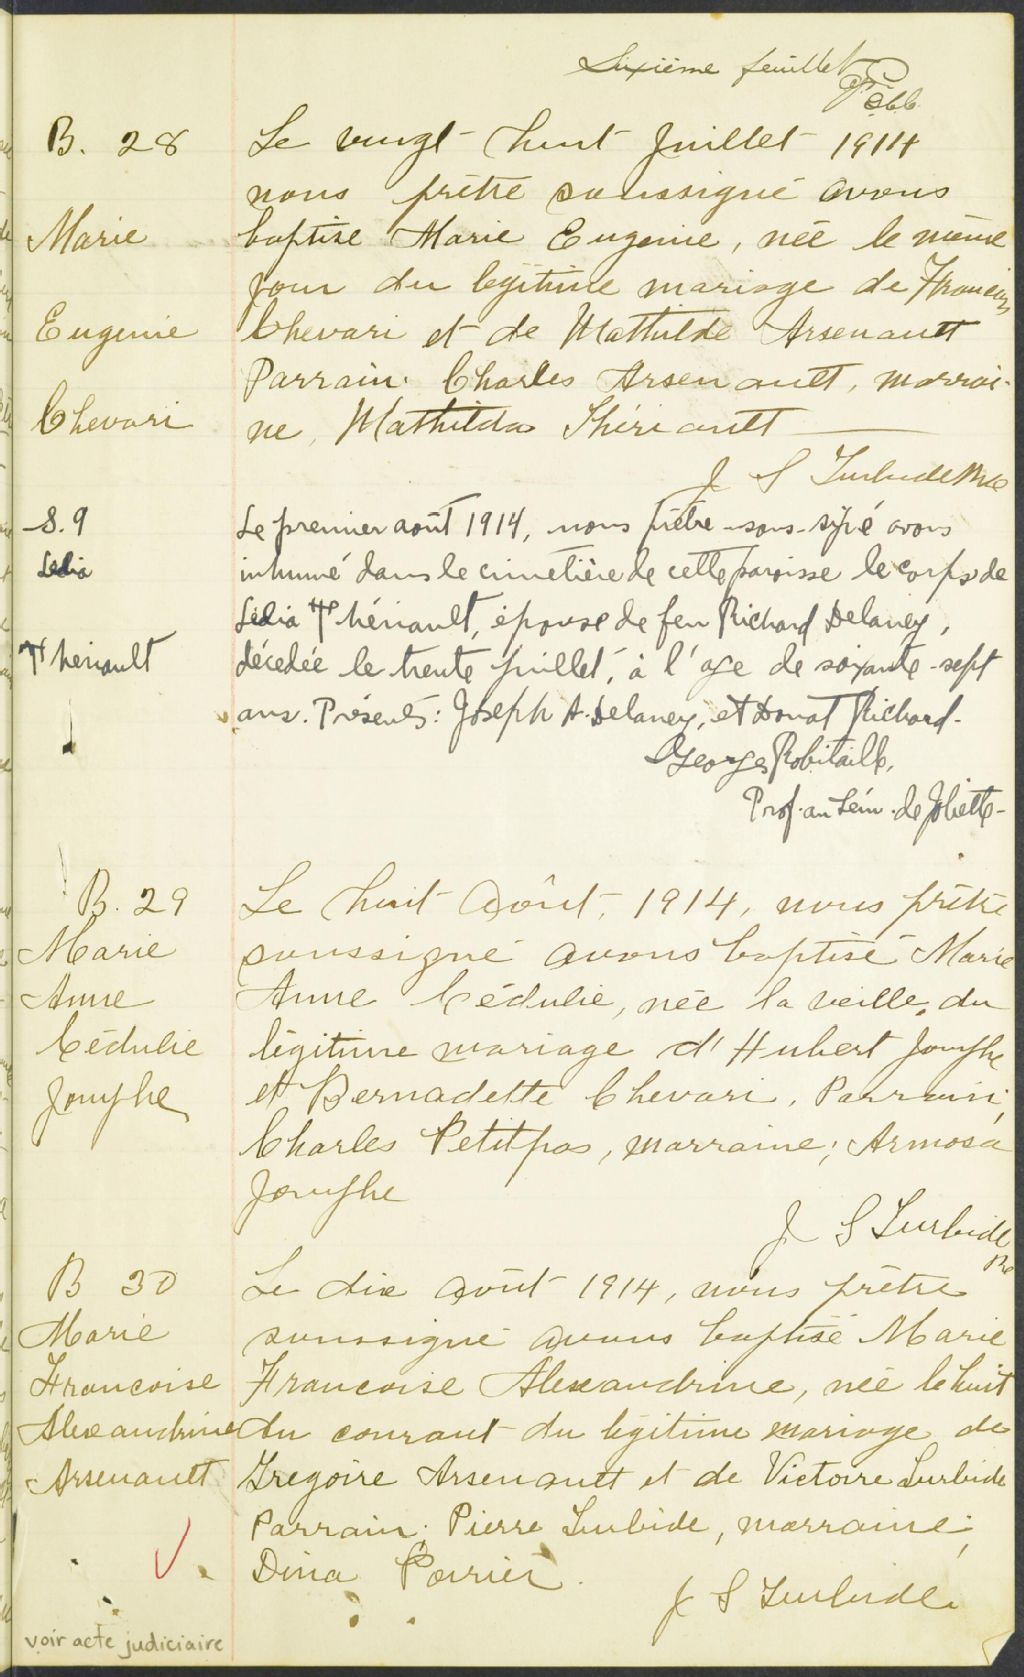 Sixième feuillet
B. 28
Le vingt huit Juillet 1914
nous prêtre soussigné avons
Marie
baptisé Marie Eugenie, née le même
jour du légitime mariage de Francois
Eugenie
Chevari et de Mathilde Arsenault
Parrain: Charles Arsenault, marrai-
Chevari
ne, Mathilda Thériault
J S Turbide Ptre
S. 9
Le premier août 1914, nous prêtre sous-signé avons
Lédia
inhumé dans le cimetière de cette paroisse le corps de
Lédia Thériault, épouse de feu Richard Delaney,
Thériault
décedée le trente juillet, à l'age de soixante-sept
ans. Présents: Joseph A. Delaney, et Donat Richard.
Georges Robitaille,
Prof. au Sém. de Joliette-
B. 29
Le huit Août, 1914, nous prêtre
Marie
soussigné avons baptisé Marie
Anne
Anne Cédulie, née la veille, du
Cédulie
légitime mariage d'Hubert Jomphe
Jomphe
et Bernadette Chevari, Parrain;
Charles Petitpas, marraine; Armosa
Jomphe
J S Turbide
Ptre
B 30
Le dix Août 1914, nous prêtre
Marie
soussigné avons baptisé Marie
Francoise
Francoise Alexandrine, née le huit
Alexandrine
du courant du légitime mariage de
Arsenault
Gregoire Arsenault et de Victoire Turbide
Parrain; Pierre Turbide, marraine;
Dina Poirier.
J S Turbide
voir acte judiciaire